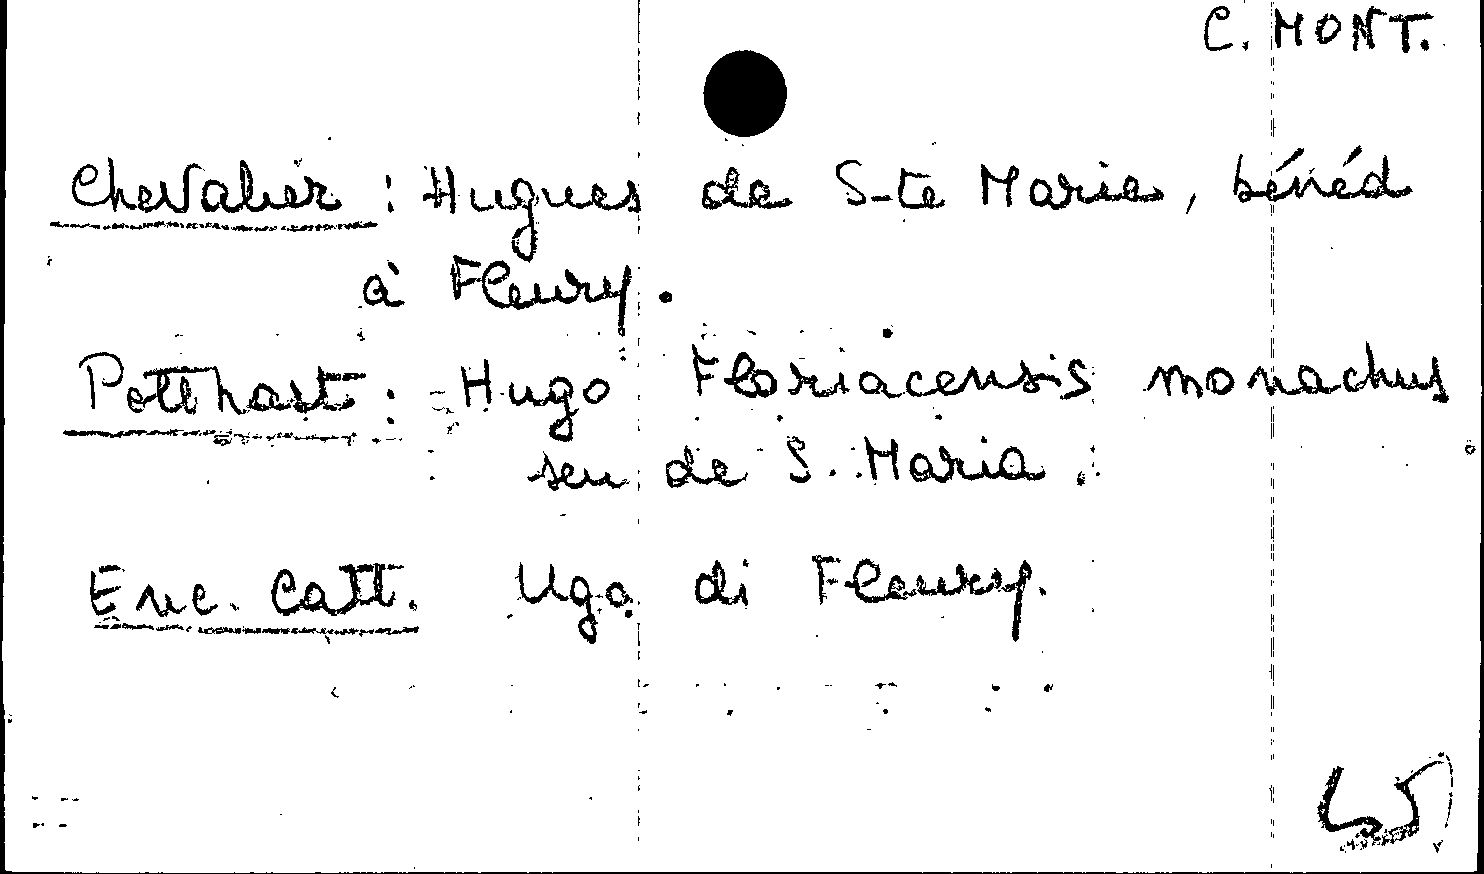 C. MONT.
Chevalier : Hugues de S-te Marie, bénéd
à Fleury.
Potthast : Hugo Floriacensis monachus
seu de S. Maria.
Enc. Catt. Ugo di Fleury.